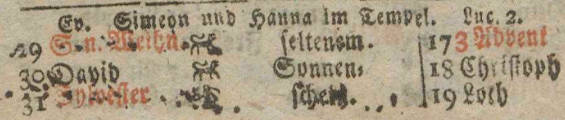 Ev. Simeon und Hanna im Tempel. Luc. 2.
29 S. n. Weihn. seltenem. 173 Advent
30 David Sonnen- 18 Christoph
31 Sylvester schein. 19 Loth